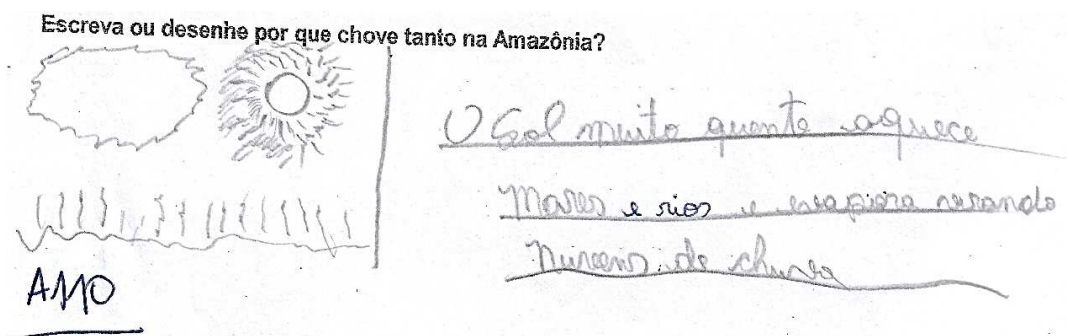 Escreva ou desenhe por que chove tanto na Amazônia?
O Sol muito quente aquece
Mares e rios e evapora virando
Nuvens de chuva
A110